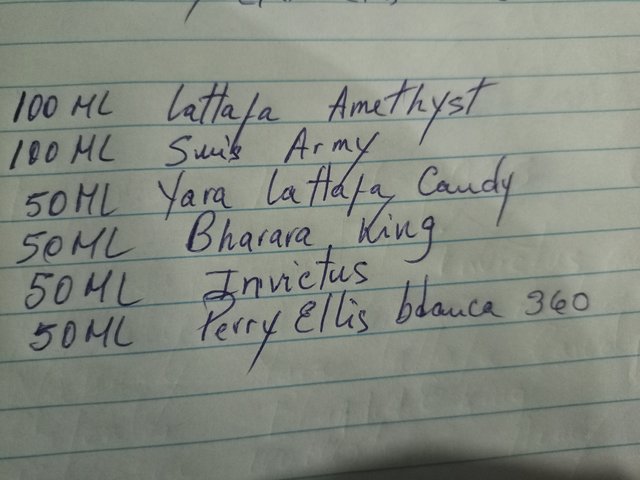 100 ML Lattafa Amethyst
100 ML Swis Army
50ML Yara Lattafa Candy
50ML Bharara King
50ML Invictus
50ML Perry Ellis blanca 360